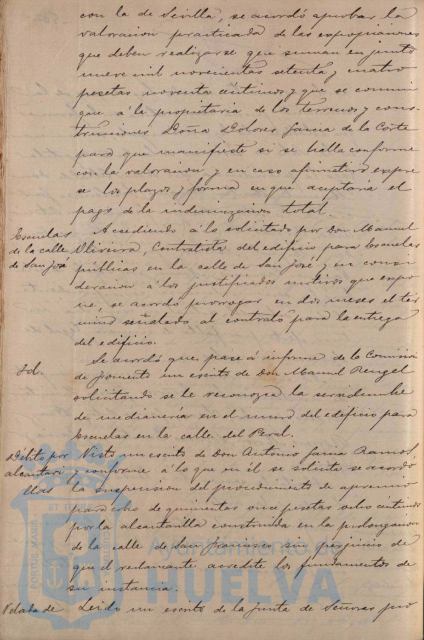 con la de Sevilla, se acordó aprobar la
valoracion practicada de las expropiaciones
que deben realizarse que suman en junto
nueve mil novecientas setenta y cuatro
pesetas noventa céntimos y que se comuni
que á la propietaria de los terrenos y cons
trucciones Doña Dolores Garcia de la Corte
para que manifieste si se halla conforme
con la valoracion y en caso afirmativo expre
se los plazos y forma en que aceptaria el
pago de la indemnizacion total.
Escuelas de la calle de San José
Accediendo á lo solicitado por Don Manuel
Oliveira, Contratista del edificio para Escuelas
públicas en la calle de San José y en consi
deracion á los justificados motivos que expo
ne, se acordó prorrogar en dos meses el tér
mino señalado al contrato para la entrega
del edificio.
Id.
Se acordó que pase á informe de la Comision
de fomento un escrito de Don Manuel Rengel
solicitando se le reconozca la servidumbre
de medianería en el muro del edificio para
Escuelas en la calle del Peral.
Débito por alcantari llas
Visto un escrito de Don Antonio Garcia Ramos
y conforme á lo que en él se solicita se acordó
la suspension del procedimiento de apremio
para cobro de quinientas once pesetas ocho céntimos
por la alcantarilla construida en la prolongacion
de la calle de San Francisco sin perjuicio de
que el reclamante acredite los fundamentos de
su instancia.
Velada de
Leido un escrito de la Junta de Señoras pro
Ayuntamiento de
HUELVA